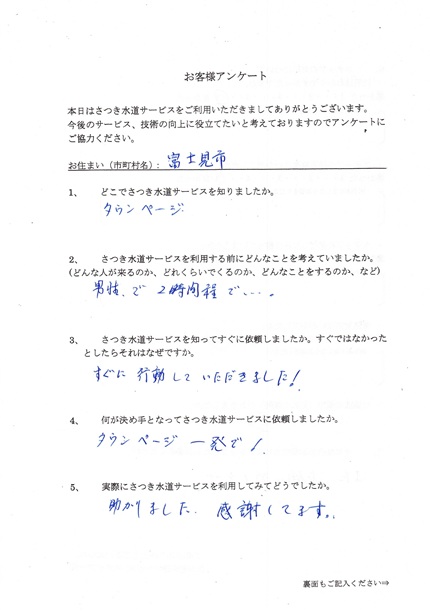 お客様アンケート
本日はさつき水道サービスをご利用いただきましてありがとうございます。
今後のサービス、技術の向上に役立てたいと考えておりますのでアンケートに
ご協力ください。
お住まい（市町村名）: 富士見市
1、 どこでさつき水道サービスを知りましたか。
タウンページ
2、 さつき水道サービスを利用する前にどんなことを考えていましたか。
(どんな人が来るのか、どれくらいでくるのか、どんなことをするのか、など)
男性、で 2時間程で、、、。
3、 さつき水道サービスを知ってすぐに依頼しましたか。すぐではなかった
としたらそれはなぜですか。
すぐに 行動して いただきました!
4、 何が決め手となってさつき水道サービスに依頼しましたか。
タウンページ 一発で!
5、 実際にさつき水道サービスを利用してみてどうでしたか。
助かりました、 感謝してます。
裏面もご記入ください⇒